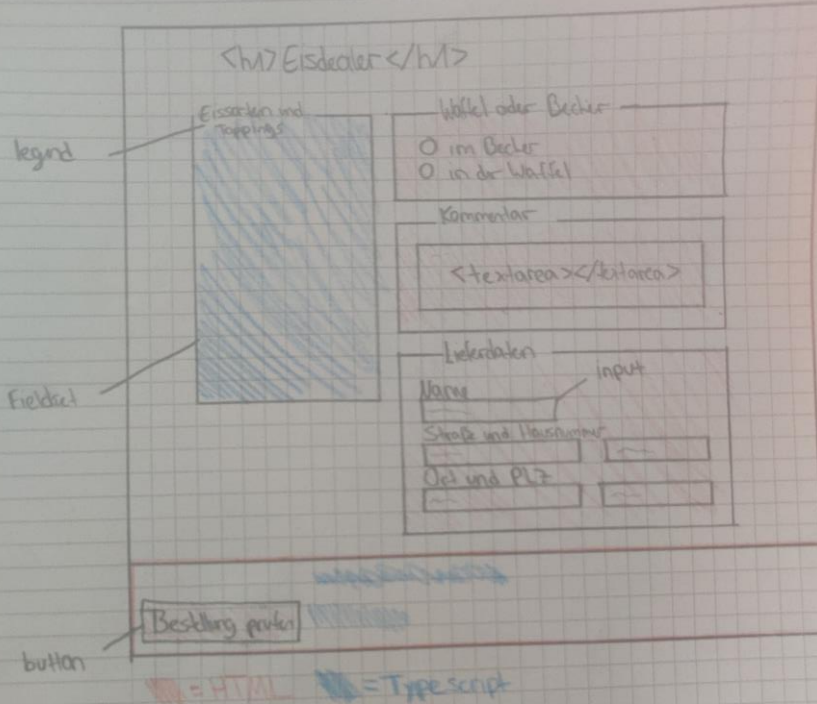 <h1>Eisdealer</h1>
Eissorten und
Toppings
legend
Waffel oder Becher
im Becher
in der Waffel
Kommentar
<textarea></textarea>
Lieferdaten
input
Name
Fieldset
Straße und Hausnummer
Ort und PLZ
Bestellung prüfen
button
= HTML
= Typescript